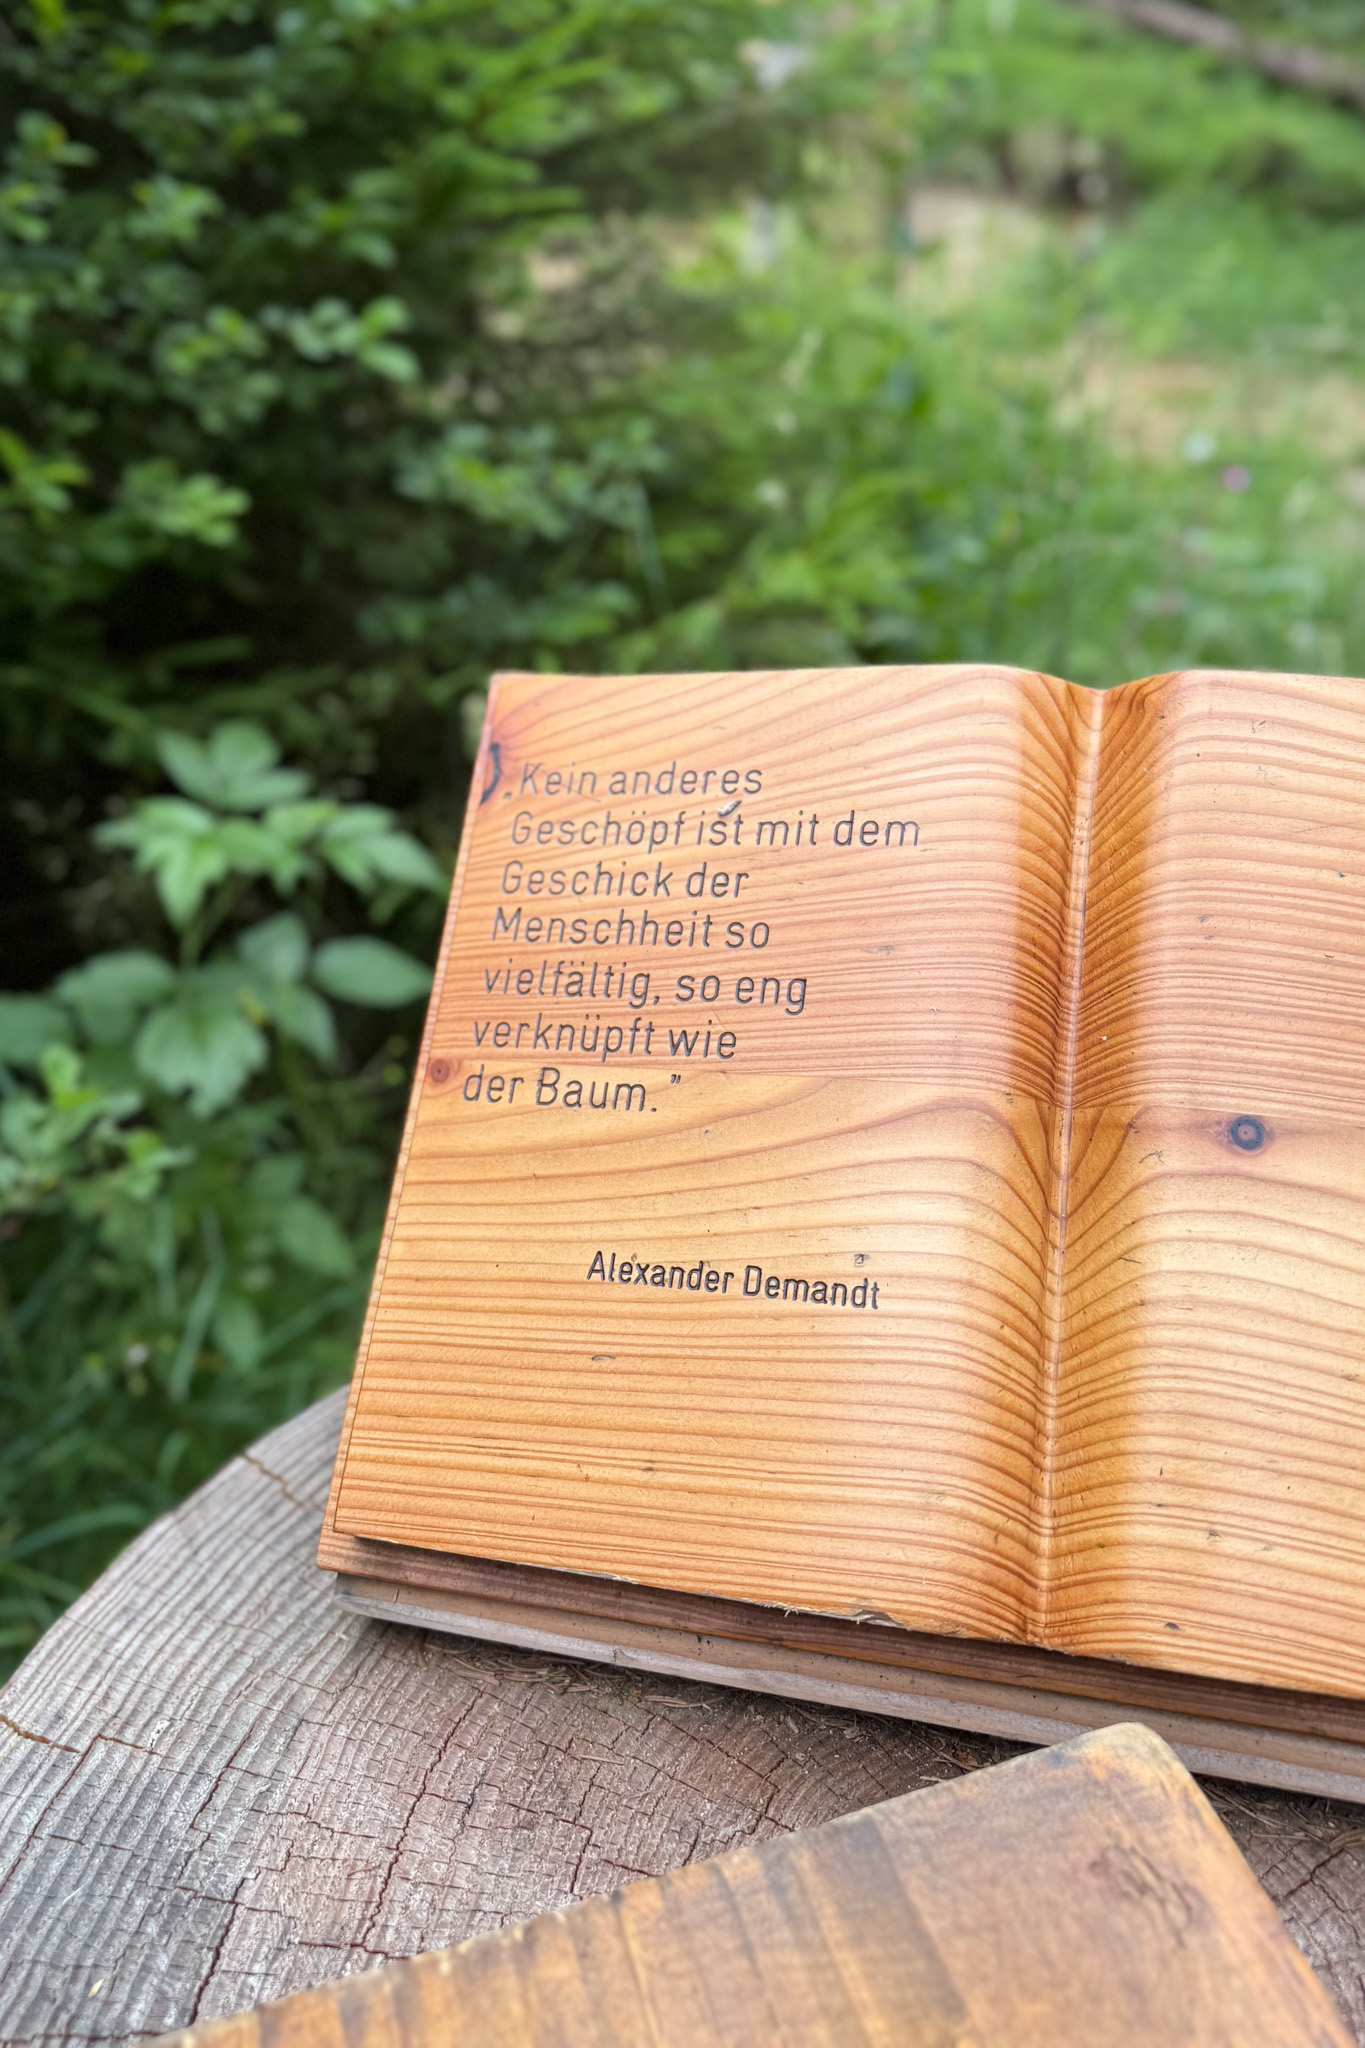 „Kein anderes
Geschöpf ist mit dem
Geschick der
Menschheit so
vielfältig, so eng
verknüpft wie
der Baum."
Alexander Demandt